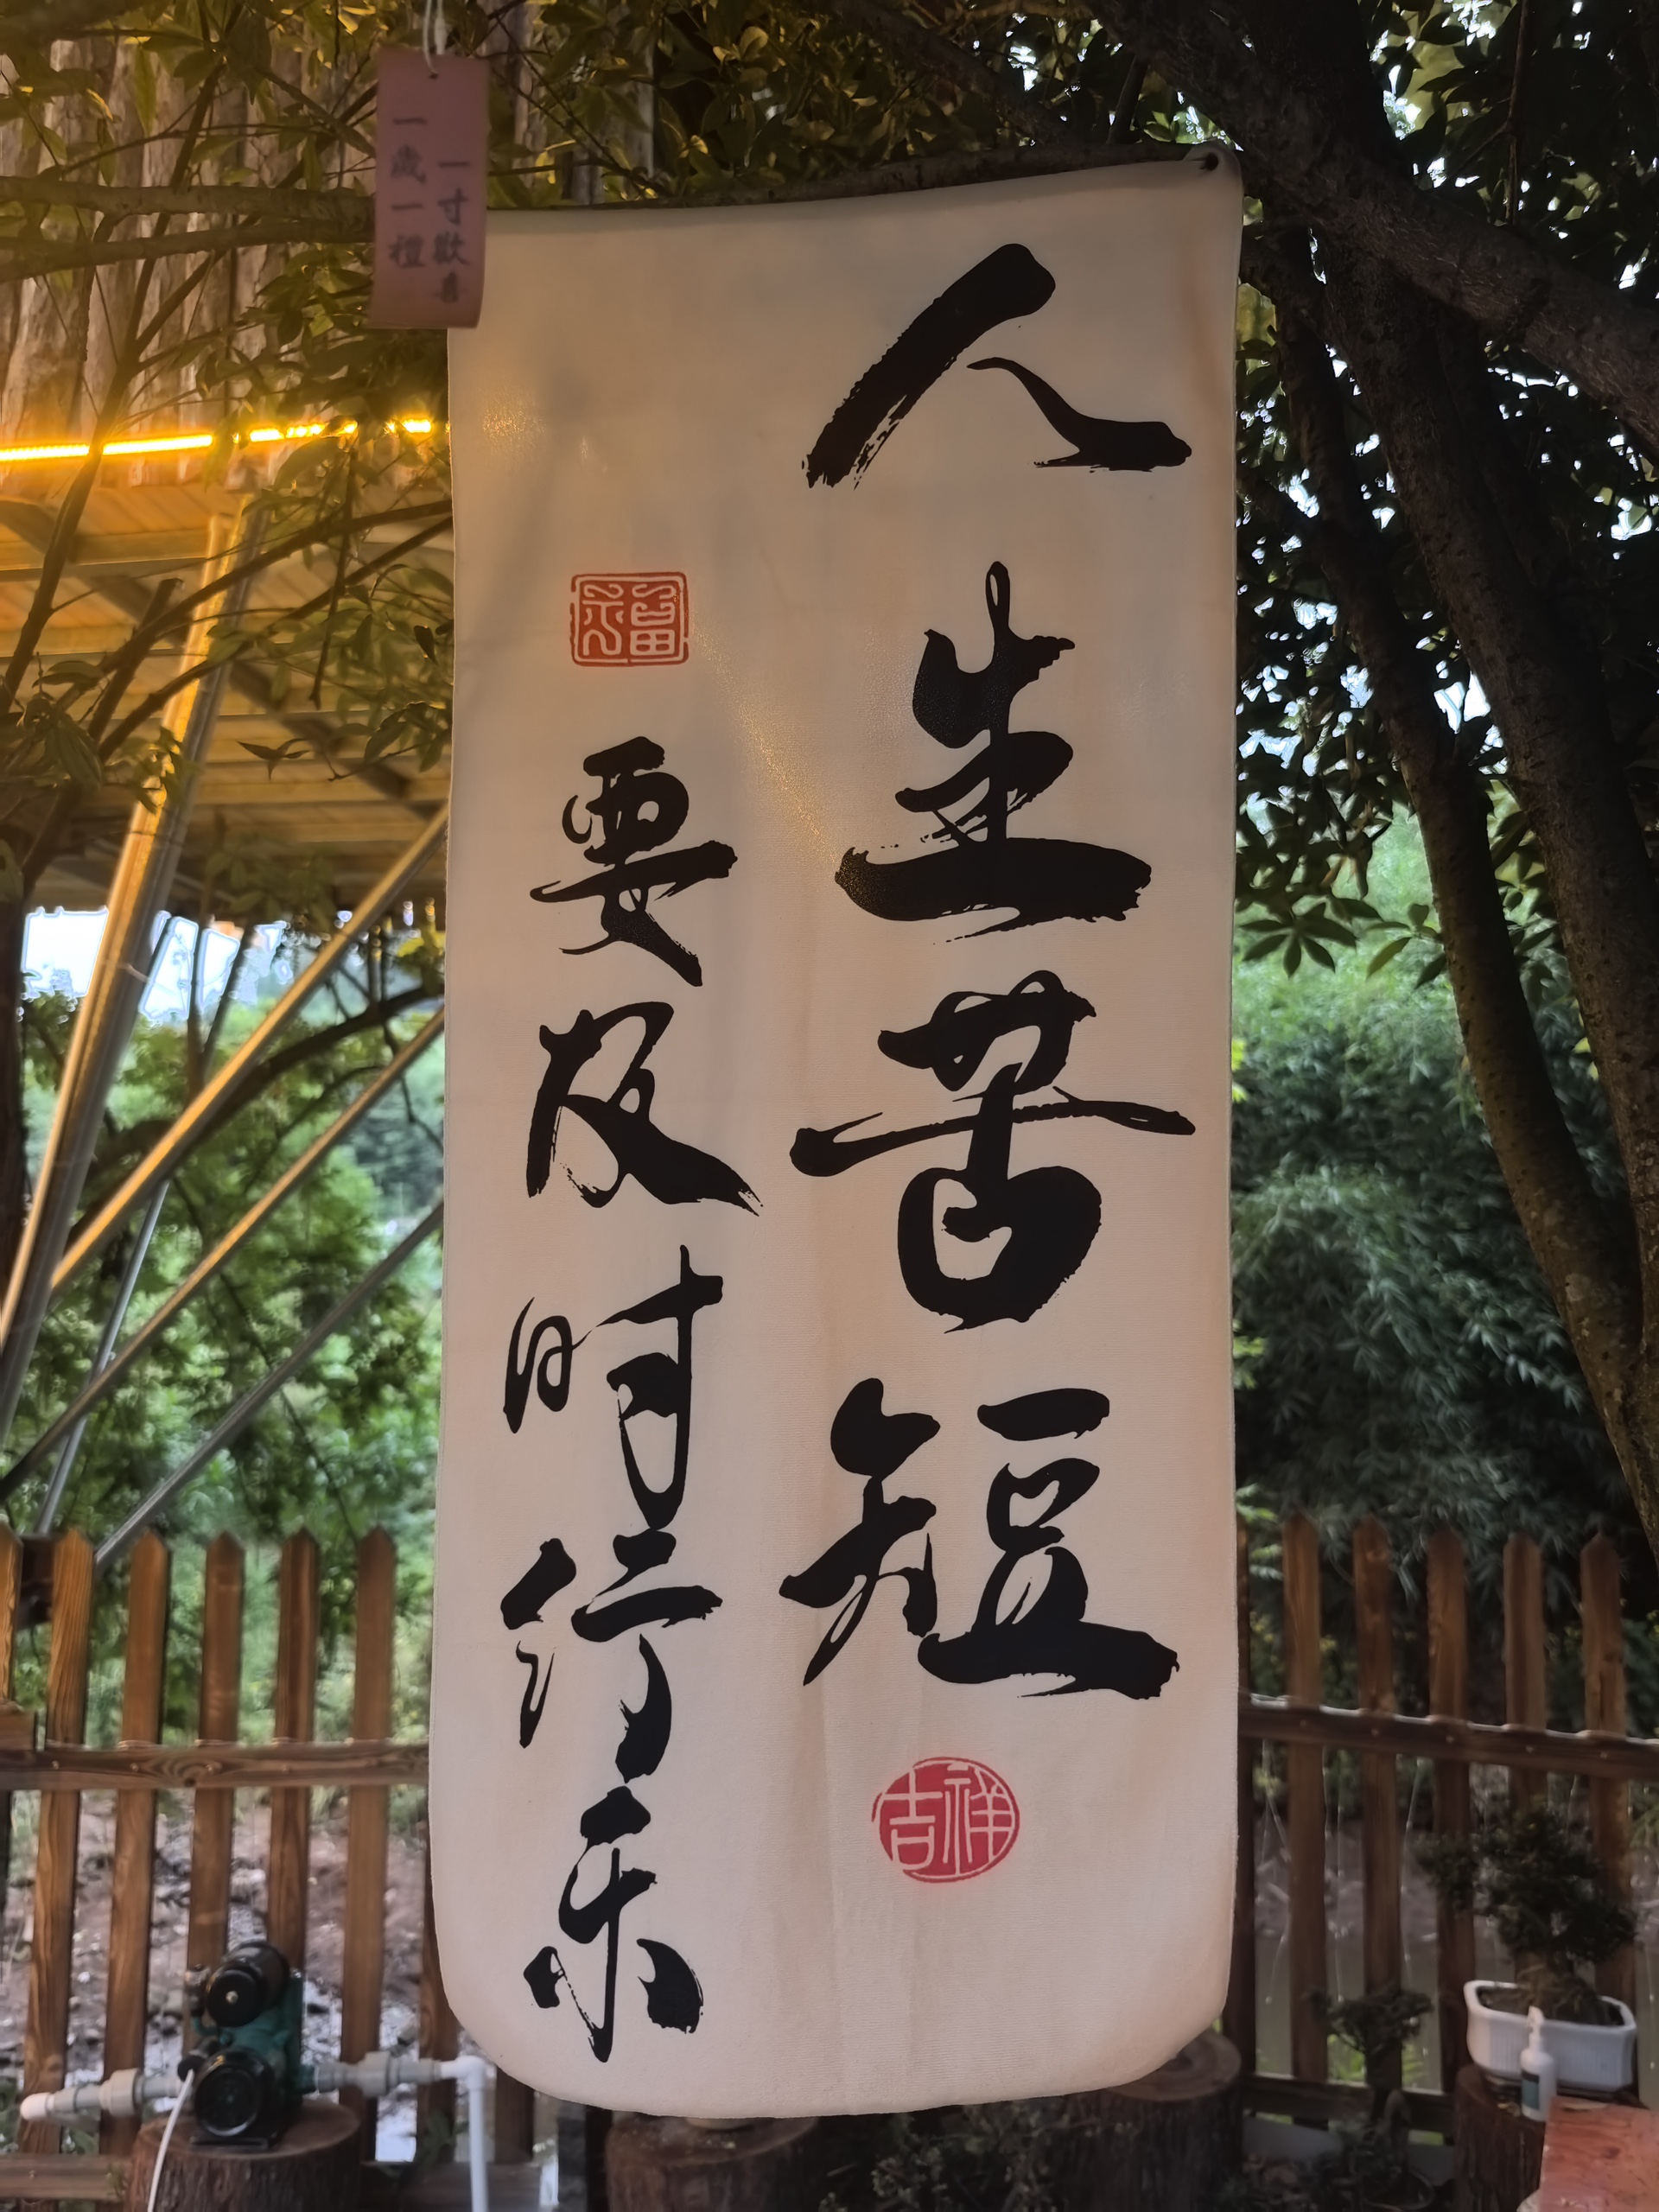 人生苦短
吉祥
福
要及时行乐
一寸歡喜
一歲一禮